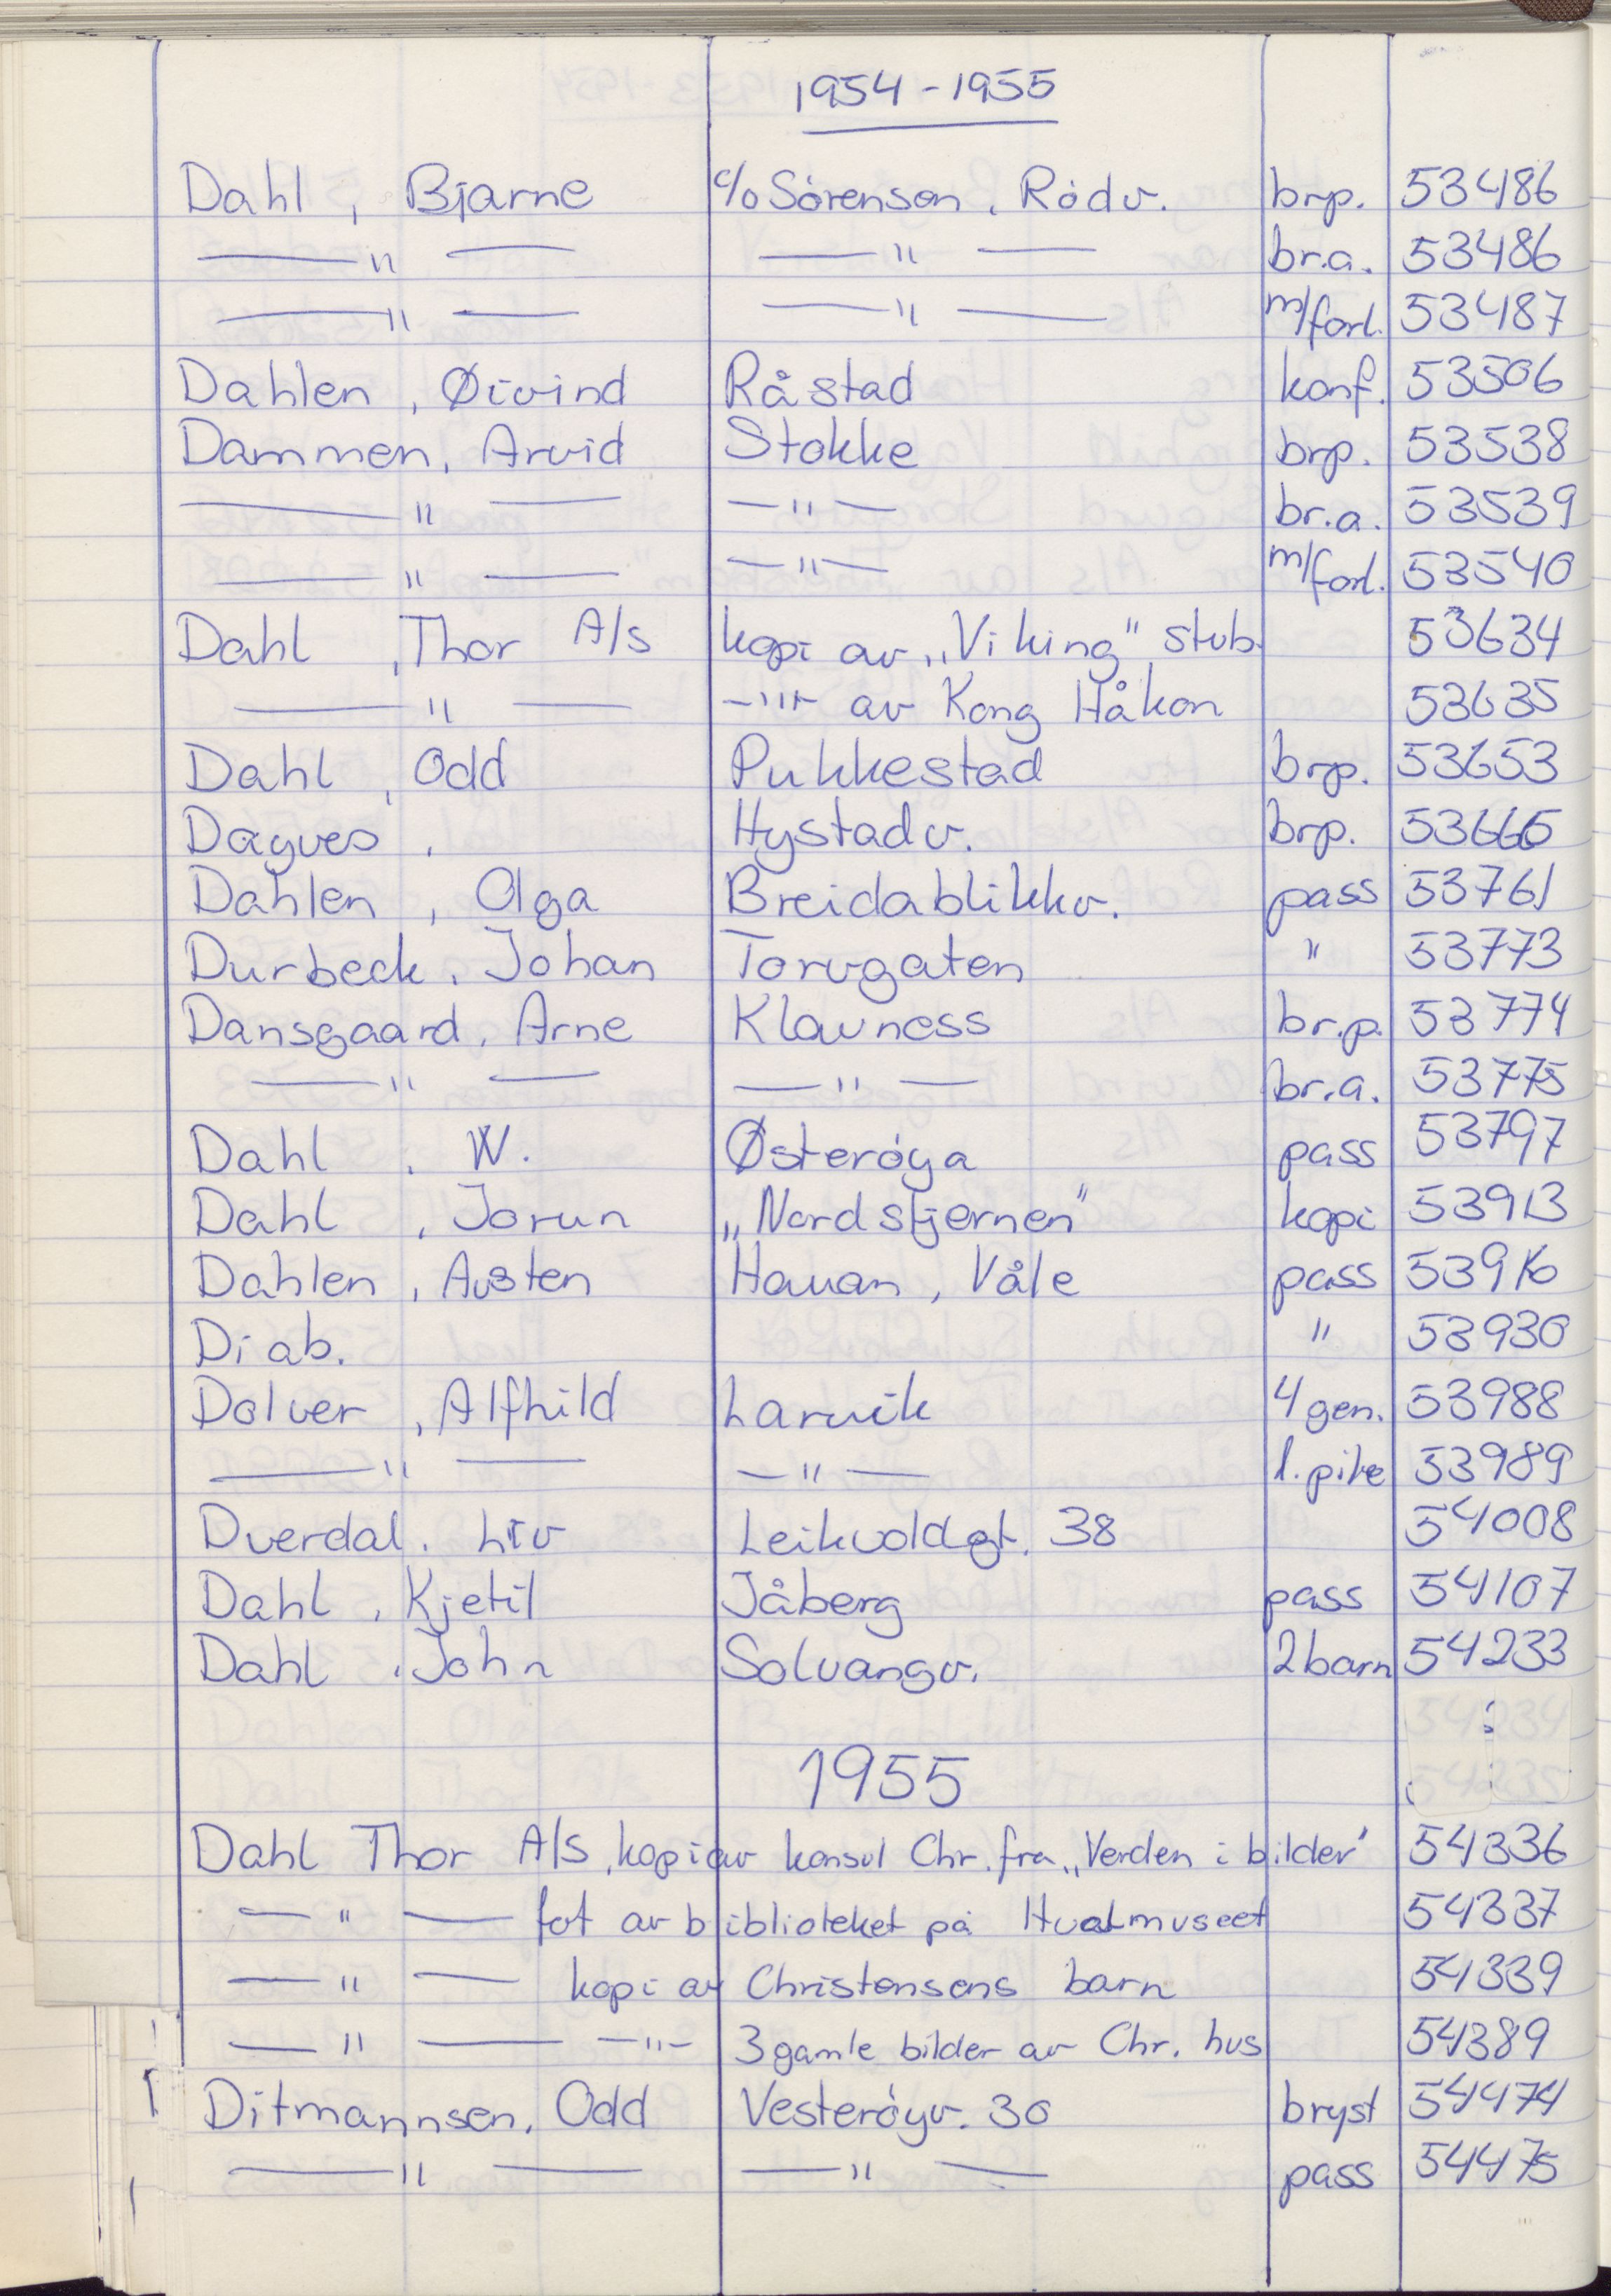 1954-1955
Dahl, Bjarne c/o Sörenson, Rödv. brp. 53486
—"— —"— br.a. 53486
—"— —"— m/forl. 53487
Dahlen, Øivind Råstad konf. 53506
Dammen, Arvid Stokke brp. 53538
—"— —"— br.a. 53539
—"— —"— m/forl. 53540
Dahl, Thor A/s kopi av „Viking" stub. 53634
—"— —"— av Kong Håkon 53635
Dahl, Odd Pukkestad brp. 53653
Dagves, Hystadv. brp. 53665
Dahlen, Olga Breidablikkv. pass 53761
Durbeck, Johan Torvgaten " 53773
Dansgaard, Arne Klavness br.p. 53774
—"— —"— br.a. 53775
Dahl, W. Østeröya pass 53797
Dahl, Jorun „Nordstjernen" kopi 53913
Dahlen, Austen Hauan, Våle pass 53916
Diab. " 53930
Dolver, Alfhild Larvik 4 gen. 53988
—"— —"— 1. pike 53989
Dverdal, Liv Leikvoldgt. 38 54008
Dahl, Kjetil Jåberg pass 54107
Dahl, John Solvangv. 2 barn 54233
1955
Dahl Thor A/S, kopi av konsul Chr. fra „Verden i bilder" 54336
—"— fot av biblioteket på Hvalmuseet 54337
—"— kopi av Christensens barn 54339
—"— —"— 3 gamle bilder av Chr. hus 54389
Ditmannsen, Odd Vesteröyv. 30 bryst 54474
—"— —"— pass 54475